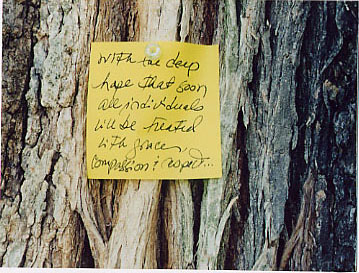 WITH the deep
hope that soon
all individuals
will be treated
with grace,
compassion & respect...